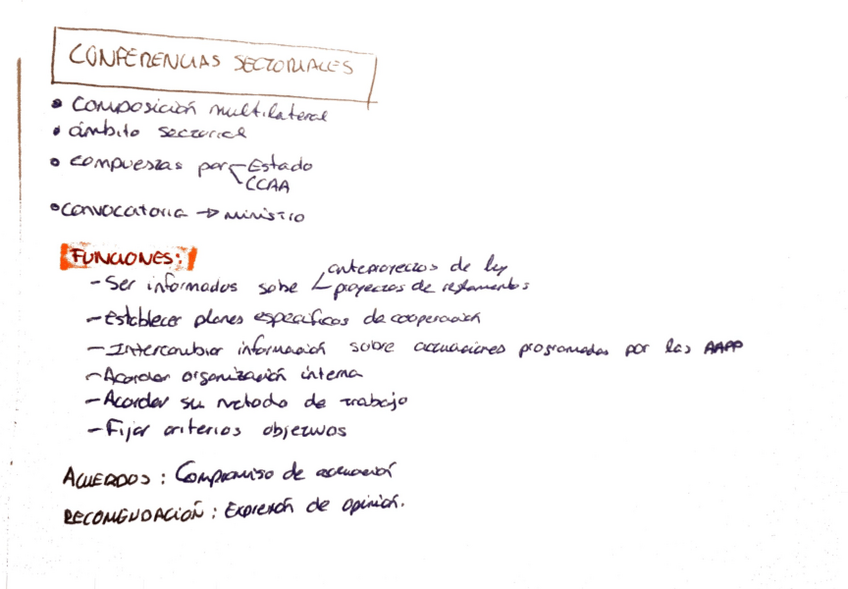 CONFERENCIAS SECTORIALES
• Composición multilateral
• ámbito sectorial
• compuestas por Estado
CCAA
• convocatoria → ministro
FUNCIONES:
- Ser informados sobre anteproyectos de ley
proyectos de reglamentos
- Establecer planes específicos de cooperación
- Intercambiar información sobre actuaciones programadas por las AAPP
- Acordar organización interna
- Acordar su metodo de trabajo
- Fijar criterios objetivos
ACUERDOS: Compromiso de actuación
RECOMENDACIÓN: Expresión de opinión.